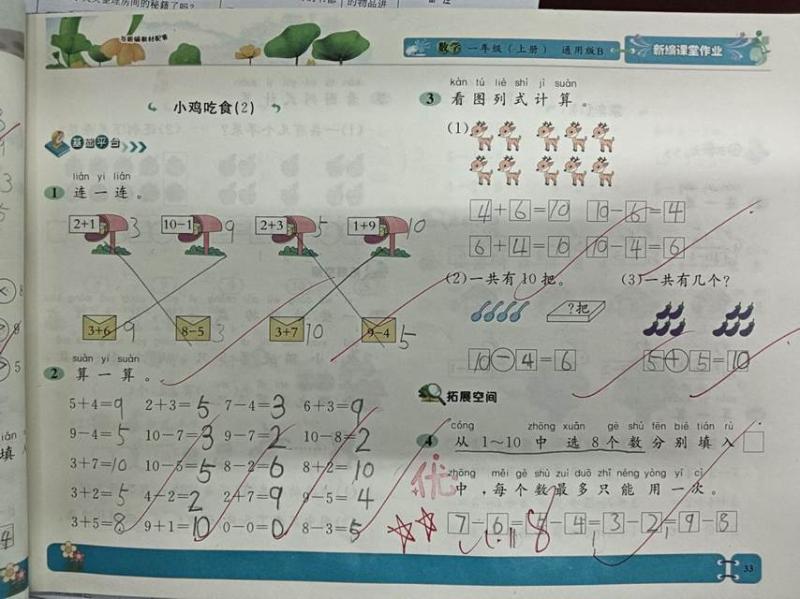 与新编教材配套
数学 一年级(上册) 通用版B
新编课堂作业
小鸡吃食(2)
基础平台
lián yi lián
1 连一连。
2+1 3 10-1 9 2+3 5 1+9 10
3+6 9 8-5 3 3+7 10 9-4 5
suàn yi suàn
2 算一算。
5+4=9 2+3=5 7-4=3 6+3=9
9-4=5 10-7=3 9-7=2 10-8=2
3+7=10 10-5=5 8-2=6 8+2=10
3+2=5 4-2=2 2+7=9 9-5=4
3+5=8 9+1=10 0-0=0 8-3=5
kàn tú liè shì jì suàn
3 看图列式计算。
(1)
4+6=10 10-6=4
6+4=10 10-4=6
(2)一共有10把。 (3)一共有几个?
?把
10-4=6 5+5=10
拓展空间
cóng zhōng xuǎn gè shù fēn bié tián rù
4 从 1~10 中选8个数分别填入□
zhōng měi gè shù zuì duō zhǐ néng yòng yí cì
中,每个数最多只能用一次。
优
7-6=5-4=3-2=9-8
33